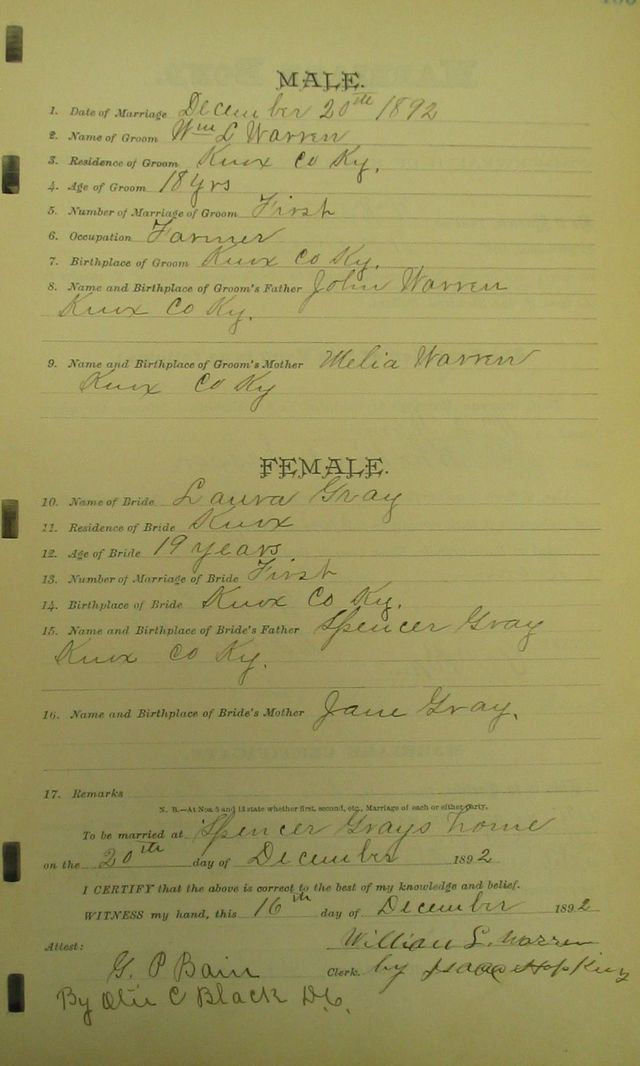 MALE.
1. Date of Marriage December 20th 1892
2. Name of Groom Wm L Warren
3. Residence of Groom Knox Co Ky.
4. Age of Groom 18 yrs
5. Number of Marriage of Groom First
6. Occupation Farmer
7. Birthplace of Groom Knox Co Ky.
8. Name and Birthplace of Groom's Father John Warren
Knox Co Ky.
9. Name and Birthplace of Groom's Mother Melia Warren
Knox Co Ky
FEMALE.
10. Name of Bride Laura Gray
11. Residence of Bride Knox
12. Age of Bride 19 years
13. Number of Marriage of Bride First
14. Birthplace of Bride Knox Co Ky.
15. Name and Birthplace of Bride's Father Spencer Gray
Knox Co Ky.
16. Name and Birthplace of Bride's Mother Jane Gray.
17. Remarks
N. B.—At Nos. 5 and 13 state whether first, second, etc., Marriage of each or either party.
To be married at Spencer Grays home
on the 20th day of December 1892
I CERTIFY that the above is correct to the best of my knowledge and belief.
WITNESS my hand, this 16th day of December 1892
Attest: William L. Warren
G. P Bain Clerk. by Isaac Hopkins
By Otie C Black D.C.